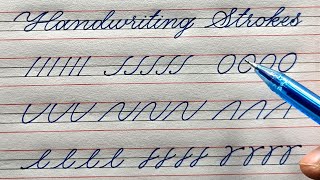 Handwriting Strokes